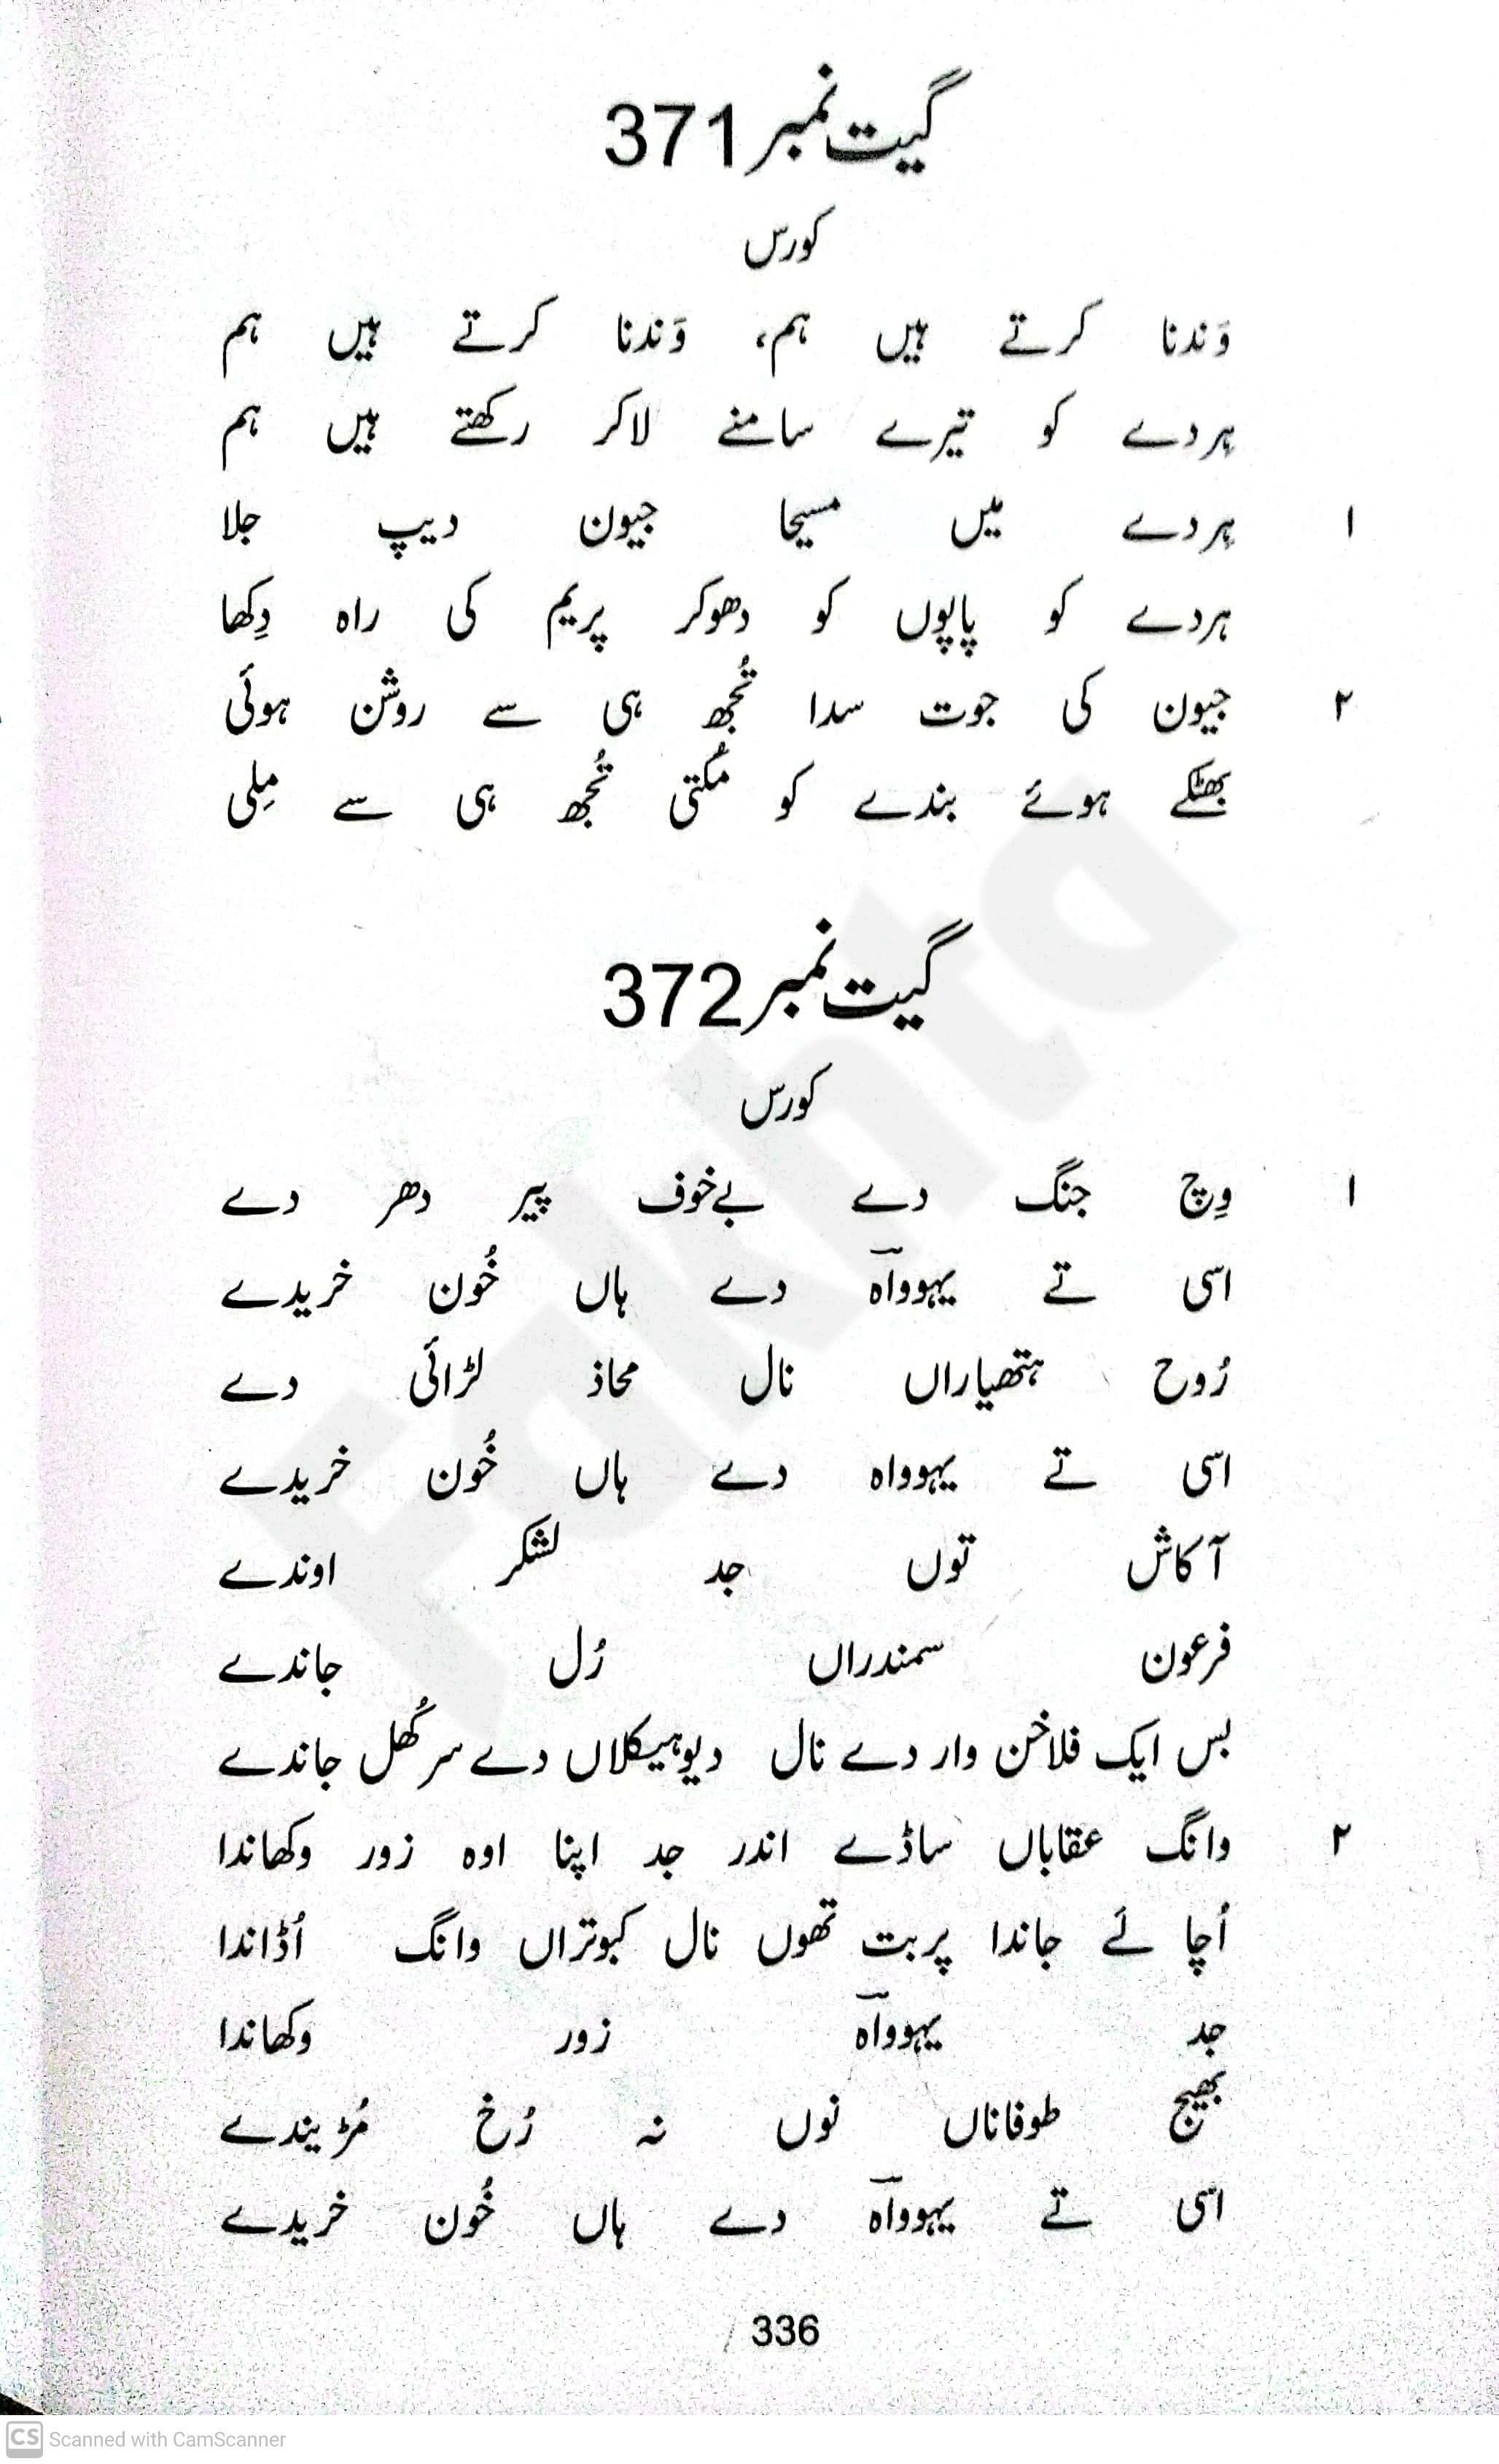 گیت نمبر 371
کورس
وَندنا کرتے ہیں ہم، وَندنا کرتے ہیں ہم
ہردے کو تیرے سامنے لاکر رکھتے ہیں ہم
۱ ہردے میں مسیحا جیون دیپ جلا
ہردے کو پاپوں کو دھوکر پریم کی راہ دِکھا
۲ جیون کی جوت سدا تُجھ ہی سے روشن ہوئی
بھٹکے ہوئے بندے کو مُکتی تُجھ ہی سے مِلی
گیت نمبر 372
کورس
۱ وِچ جنگ دے بےخوف پیر دھر دے
اسی تے یہوواؔہ دے ہاں خُون خریدے
رُوح ہتھیاراں نال محاذ لڑائی دے
اسی تے یہوواہ دے ہاں خُون خریدے
آکاش توں جد لشکر اوندے
فرعون سمندراں رُل جاندے
بس ایک فلاخن وار دے نال دیوہیکلاں دے سر کُھل جاندے
۲ وانگ عقاباں ساڈے اندر جد اپنا اوہ زور وکھاندا
اُچا لَے جاندا پربت تھوں نال کبوتراں وانگ اُڈاندا
جد یہوواؔہ زور وکھاندا
بھیج طوفاناں نوں نہ رُخ مُڑیندے
اسی تے یہوواؔہ دے ہاں خُون خریدے
336
Fakhta
CS Scanned with CamScanner